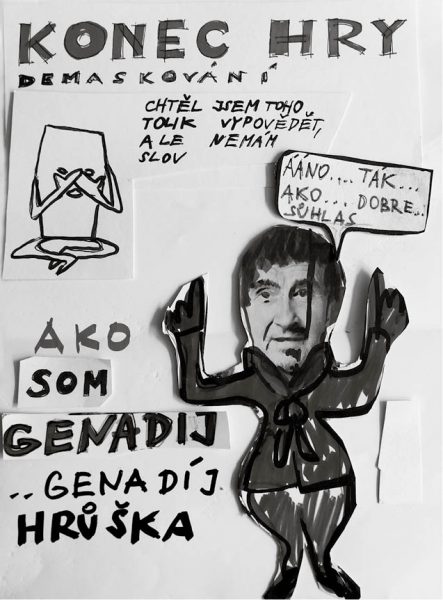 KONEC HRY
DEMASKOVÁNÍ
CHTĚL JSEM TOHO
TOLIK VYPOVĚDĚT,
ALE NEMÁM
SLOV
ÁÁNO.... TAK...
AKO... DOBRE...
SÚHLAS
AKO
SOM
GENADIJ
..GENADÍJ
HRŮŠKA